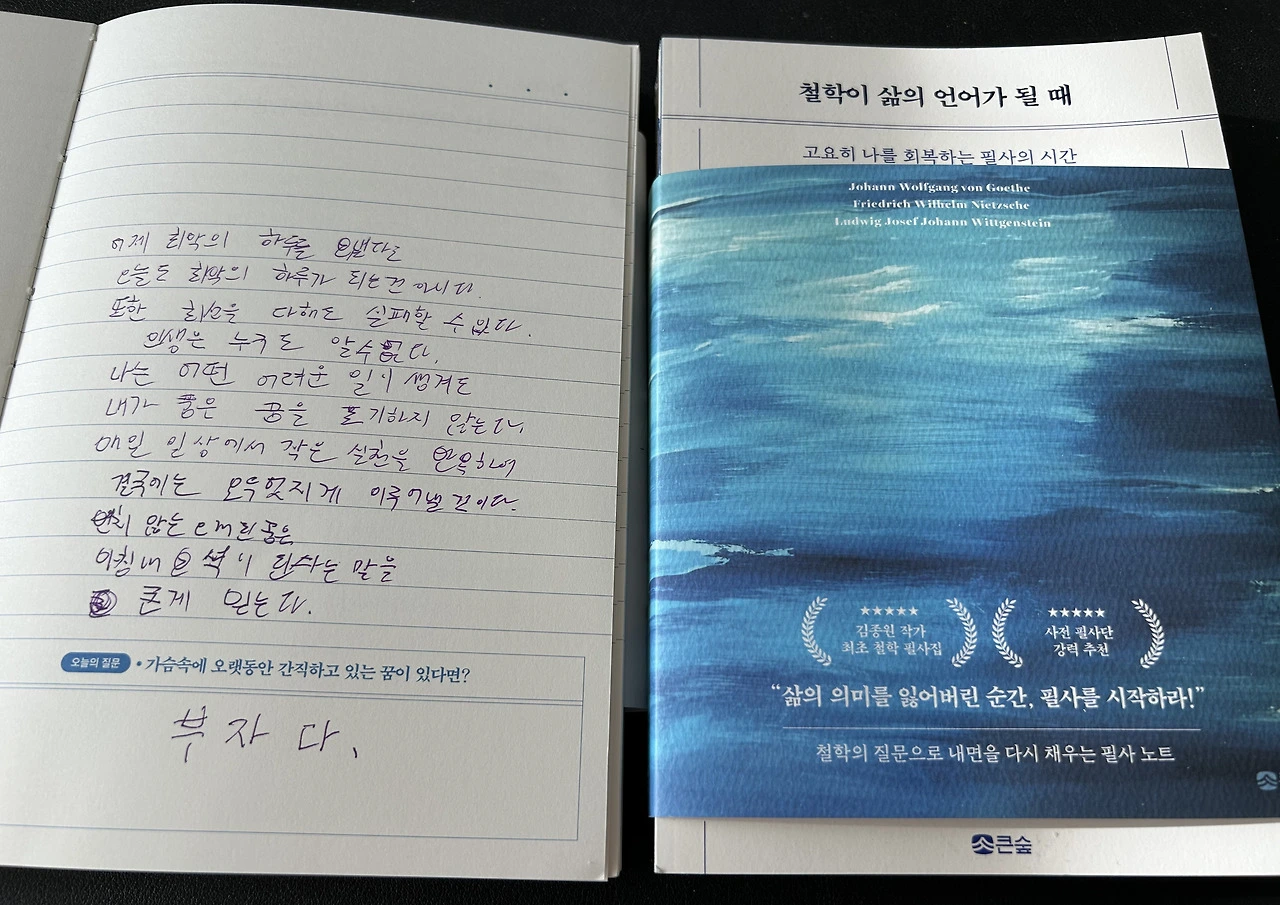 어제 최악의 하루를 보냈다고
오늘도 최악의 하루가 되는건 아니다.
또한 최선을 다해도 실패할 수 있다.
인생은 누구도 알수없다.
나는 어떤 어려운 일이 생겨도
내가 품은 꿈을 포기하지 않는다.
매일 일상에서 작은 실천을 반복하여
결국에는 모두 멋지게 이루어낼 것이다.
않는 오래된 꿈은
아침내 말을
믿는다.
오늘의 질문 • 가슴속에 오랫동안 간직하고 있는 꿈이 있다면?
부자다.
철학이 삶의 언어가 될 때
고요히 나를 회복하는 필사의 시간
Johann Wolfgang von Goethe
Friedrich Wilhelm Nietzsche
Ludwig Josef Johann Wittgenstein
★★★★★
김종원 작가
최초 철학 필사집
★★★★★
사전 필사단
강력 추천
“삶의 의미를 잃어버린 순간, 필사를 시작하라!”
철학의 질문으로 내면을 다시 채우는 필사 노트
큰숲